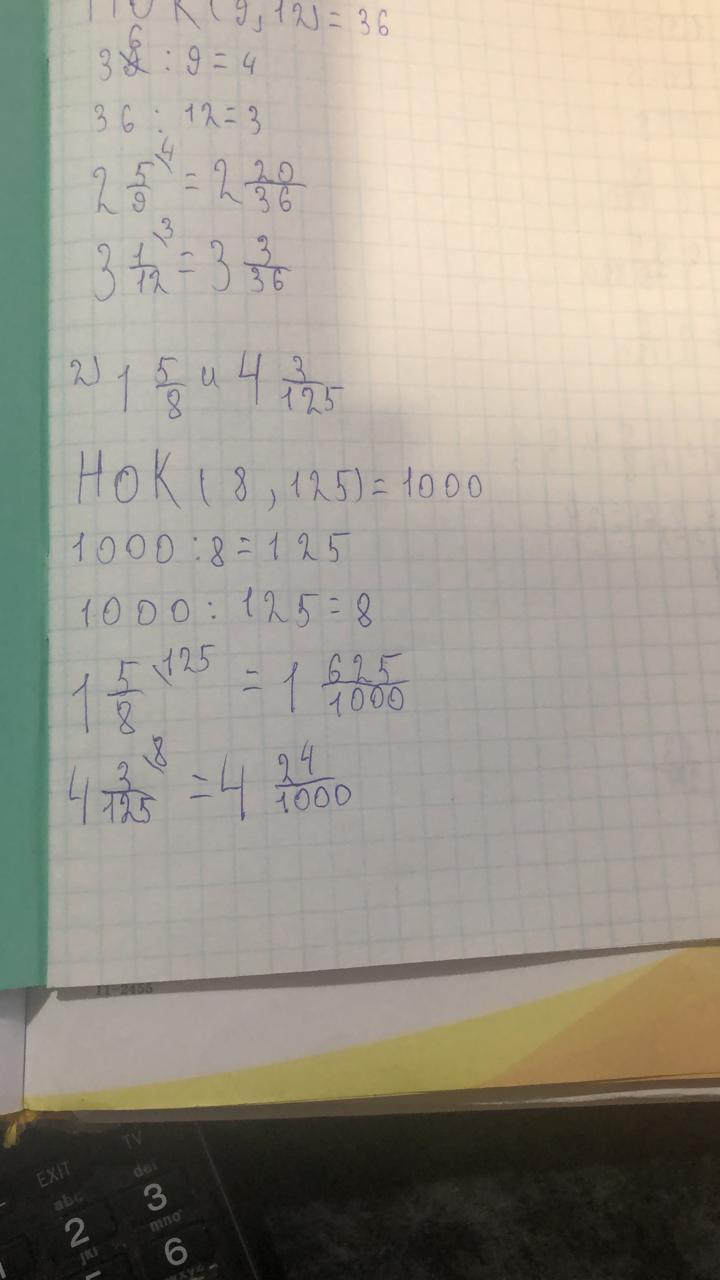 НОК (9, 12) = 36
36 : 9 = 4
36 : 12 = 3
2 5/9 \4 = 2 20/36
3 1/12 \3 = 3 3/36
г) 1 5/8 и 4 3/125
НОК ( 8 , 125) = 1000
1000 : 8 = 125
1000 : 125 = 8
1 5/8 \125 = 1 625/1000
4 3/125 \8 = 4 24/1000
11-2455
EXIT TV
abc def
2 3
jkl mno
5 6
wxyz